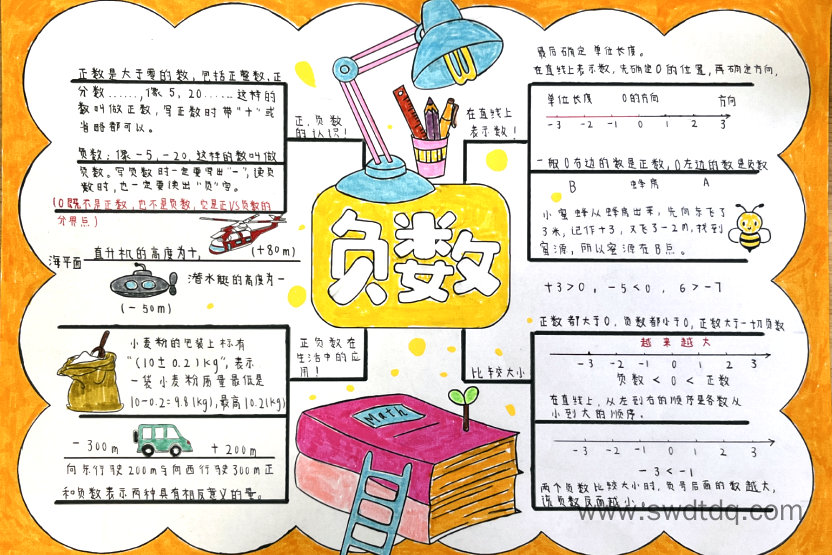 正数是大于零的数，包括正整数、正
分数……，像5，20……这样的
数叫做正数，写正数时带"十"或
省略都可以。
负数：像-5，-20，这样的数叫做
负数。写负数时一定要写出"一"，读负
数时，也一定要读出"负"字。
(0既不是正数，也不是负数，它是正VS负数的
分界点)
海平面
直升机的高度为+，
(+80m)
潜水艇的高度为一
(-50m)
小麦粉的包装上标有
"(10±0.2)kg"，表示
一袋小麦粉质量最低是
10-0.2=9.8(kg)，最高10.2(kg)
-300m
+200m
向东行驶200m与向西行驶300m正
和负数表示两种具有相反意义的量。
正、负数
的认识！
正负数在
生活中的应
用！
负数
Math
在直线上
表示数！
比较大小
最后确定单位长度。
在直线上表示数，先确定0的位置，再确定方向，
单位长度 0的方向 方向
-3 -2 -1 0 1 2 3
一般0右边的数是正数，0左边的数是负数
B 蜂房 A
小蜜蜂从蜂房出来，先向东飞了
3米，记作+3，又飞了-2m，找到
蜜源，所以蜜源在B点。
+3>0，-5<0，6>-7
正数都大于0，负数都小于0，正数大于一切负数
越来越大
-3 -2 -1 0 1 2 3
负数<0<正数
在直线上，从左到右的顺序是各数从
小到大的顺序。
-3 -2 -1 0 1 2 3
-3<-1
两个负数比较大小时，负号后面的数越大，
该负数反而越小
www.swdtdq.com